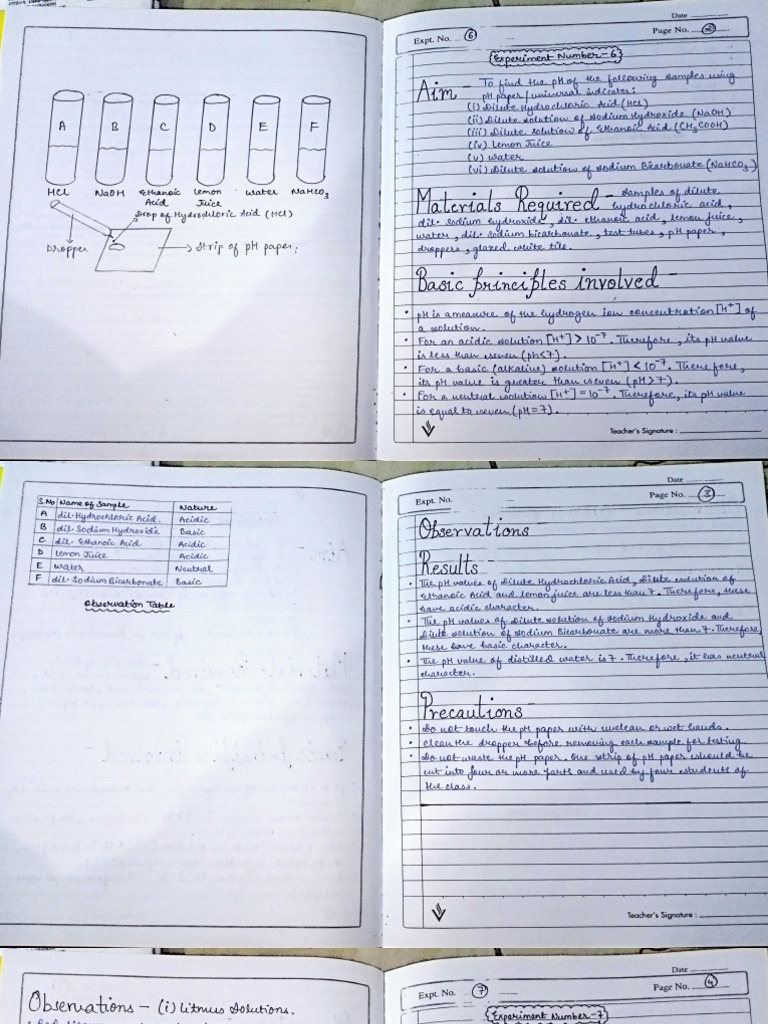 A B C D E F
HCl NaOH Ethanoic Acid Lemon Juice Water NaHCO3
Drop of Hydrochloric Acid (HCl)
Dropper
Strip of pH paper;
Date
Expt. No. 6
Page No. 2
Experiment Number-6
Aim - To find the pH of the following samples using
pH paper/universal indicator:
(i) Dilute Hydrochloric Acid (HCl)
(ii) Dilute solution of Sodium Hydroxide (NaOH)
(iii) Dilute solution of Ethanoic Acid (CH3COOH)
(iv) Lemon Juice
(v) Water
(vi) Dilute solution of Sodium Bicarbonate (NaHCO3)
Materials Required - Samples of dilute
hydrochloric acid,
dil. sodium hydroxide, dil. ethanoic acid, lemon juice,
water, dil. sodium bicarbonate, test tubes, pH paper,
droppers, glazed white tile.
Basic principles involved -
• pH is a measure of the hydrogen ion concentration [H+] of
a solution.
• For an acidic solution [H+] > 10-7. Therefore, its pH value
is less than seven (ph<7).
• For a basic (alkaline) solution [H+] < 10-7. Therefore,
its pH value is greater than seven (pH>7).
• For a neutral solution [H+] = 10-7. Therefore, its pH value
is equal to seven (pH=7).
Teacher's Signature :
S.No Name of Sample Nature
A dil. Hydrochloric Acid. Acidic
B dil. Sodium Hydroxide Basic
C dil. Ethanoic Acid Acidic
D Lemon Juice Acidic
E Water Neutral
F dil. Sodium Bicarbonate Basic
Observation Table
Date
Expt. No.
Page No. 3
Observations
Results -
• The pH values of Dilute Hydrochloric Acid, Dilute solution of
Ethanoic Acid and lemon juice are less than 7. Therefore, these
have acidic character.
• The pH values of Dilute solution of Sodium Hydroxide and
Dilute solution of Sodium Bicarbonate are more than 7. Therefore,
these have basic character.
• The pH value of distilled water is 7. Therefore, it has neutral
character.
Precautions -
• Do not touch the pH paper with unclean or wet hands.
• Clean the dropper before removing each sample for testing.
• Do not waste the pH paper. One strip of pH paper should be
cut into four or more parts and used by four students of
the class.
Teacher's Signature :
Observations - (i) Litmus Solutions.
Date
Expt. No. 7
Page No. 4
Experiment Number-7